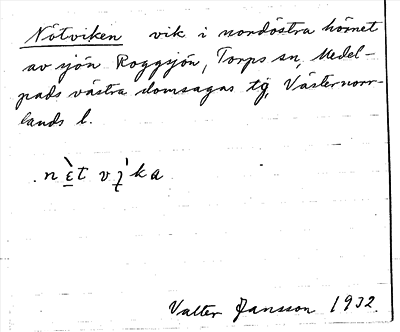 Nötviken vik i nordöstra hörnet
av sjön Roggsjön, Torps sn, Medel-
pads västra domsagas tg, Västernorr-
lands l.
nɛ̀t vı̍ka
Valter Jansson 1932.